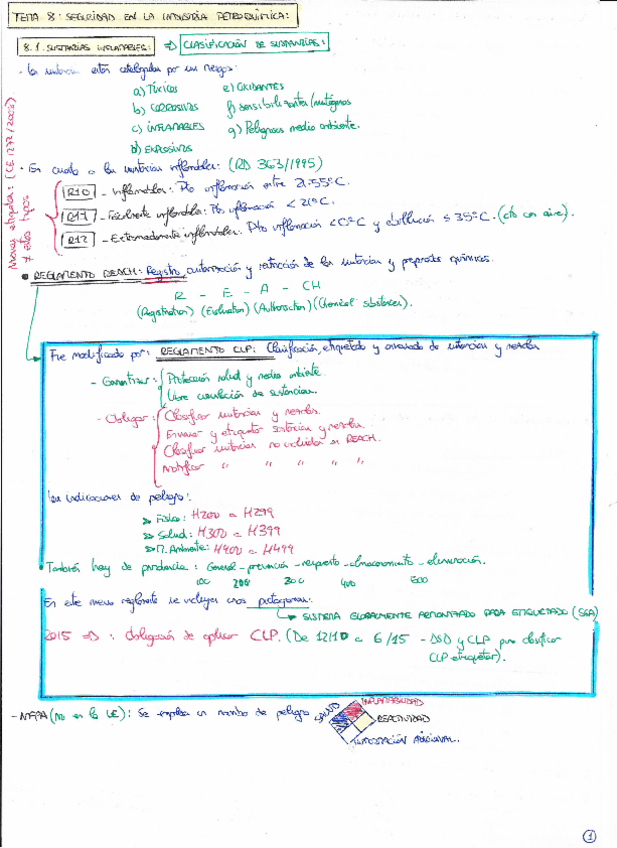 TEMA 8: SEGURIDAD EN LA INDUSTRIA PETROQUÍMICA:
8.1. SUSTANCIAS INFLAMABLES: ⇒ CLASIFICACIÓN DE SUSTANCIAS:
- Las sustancias están catalogadas por sus riesgos:
a) TÓXICOS e) OXIDANTES
b) CORROSIVOS f) Sensibilizantes/mutágenos
c) INFLAMABLES g) Peligrosos medio ambiente.
d) EXPLOSIVOS
Nuevas etiquetas: (CE 1272/2008)
7 estos tipos
· En cuanto a las sustancias inflamables: (RD 363/1995)
R10 - Inflamables: Pto inflamación entre 21-55ºC.
R17 - Fácilmente inflamables: Pto inflamación < 21ºC.
R12 - Extremadamente inflamables: Pto inflamación < 0ºC y ebullición ≤ 35ºC. (cto con aire).
• REGLAMENTO REACH: Registro, autorización y restricción de las sustancias y preparados químicos.
R - E - A - CH
(Registration) (Evaluation) (Authorisation) (Chemical substances).
Fue modificado por: REGLAMENTO CLP. Clasificación, etiquetado y envasado de sustancias y mezclas
- Garantizar: Protección salud y medio ambiente.
Libre circulación de sustancias.
- Obligar: Clasificar sustancias y mezclas.
Envasar y etiquetar sustancias y mezclas.
Clasificar sustancias no incluidas en REACH.
Notificar " " " " "
Las indicaciones de peligro:
» Físico: H200 a H299
» Salud: H300 a H399
» M. Ambiente: H400 a H499
También hay de prudencia: General - prevención - respuesta - almacenamiento - eliminación.
100 200 300 400 500
En este mismo reglamento se incluyen unos pictogramas:
SISTEMA GLOBALMENTE ARMONIZADO PARA ETIQUETADO (SGA)
2015 ⇒: Obligación de aplicar CLP. (De 12/10 a 6/15 - DSD y CLP para clasificar
CLP etiquetar).
- NFPA (no en la UE): Se emplea un rombo de peligro
SALUD
INFLAMABILIDAD
REACTIVIDAD
INFORMACIÓN ADICIONAL.
1